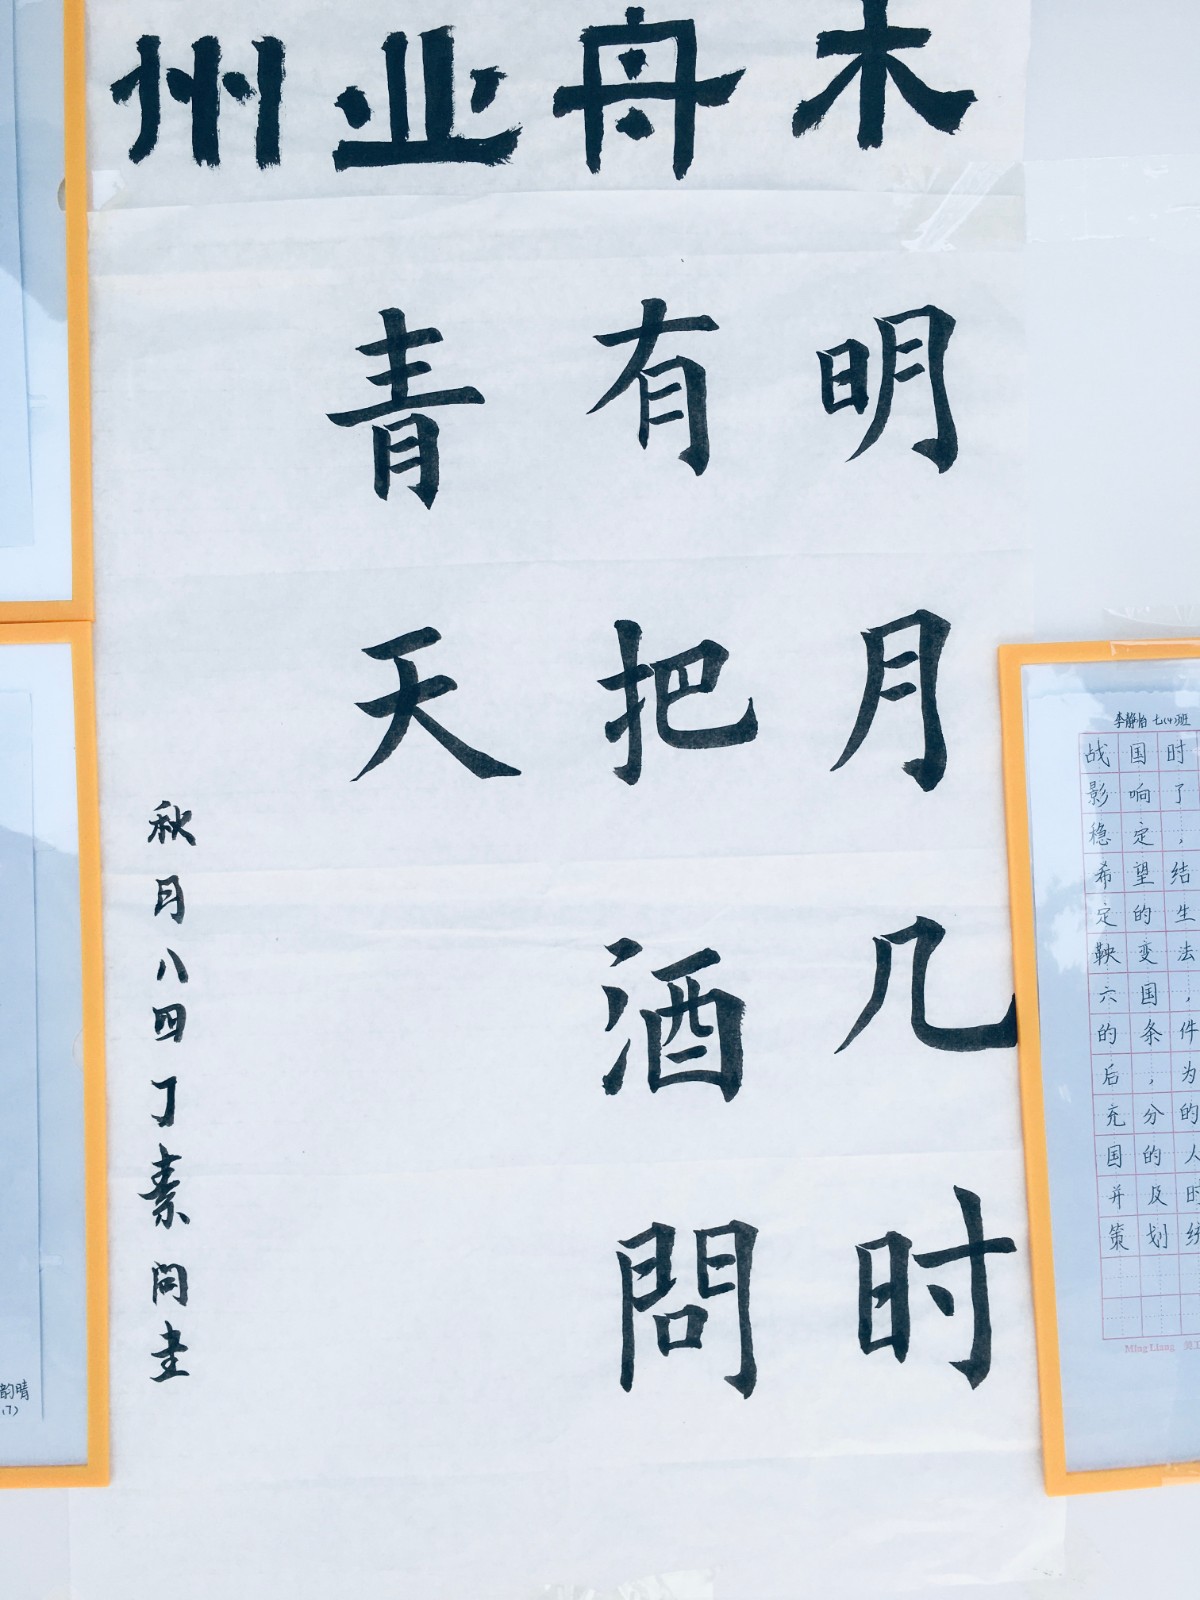 木舟业州
明月几时
有把酒問
青天
秋月八四丁素問
李静怡 七(4)班
战国时
影响了
稳定，
希望结
定的生
鞅变法
六国，
的条件
后，为
充分的
国的人
并及时
策划统
MingLiang
韵晴
(7)